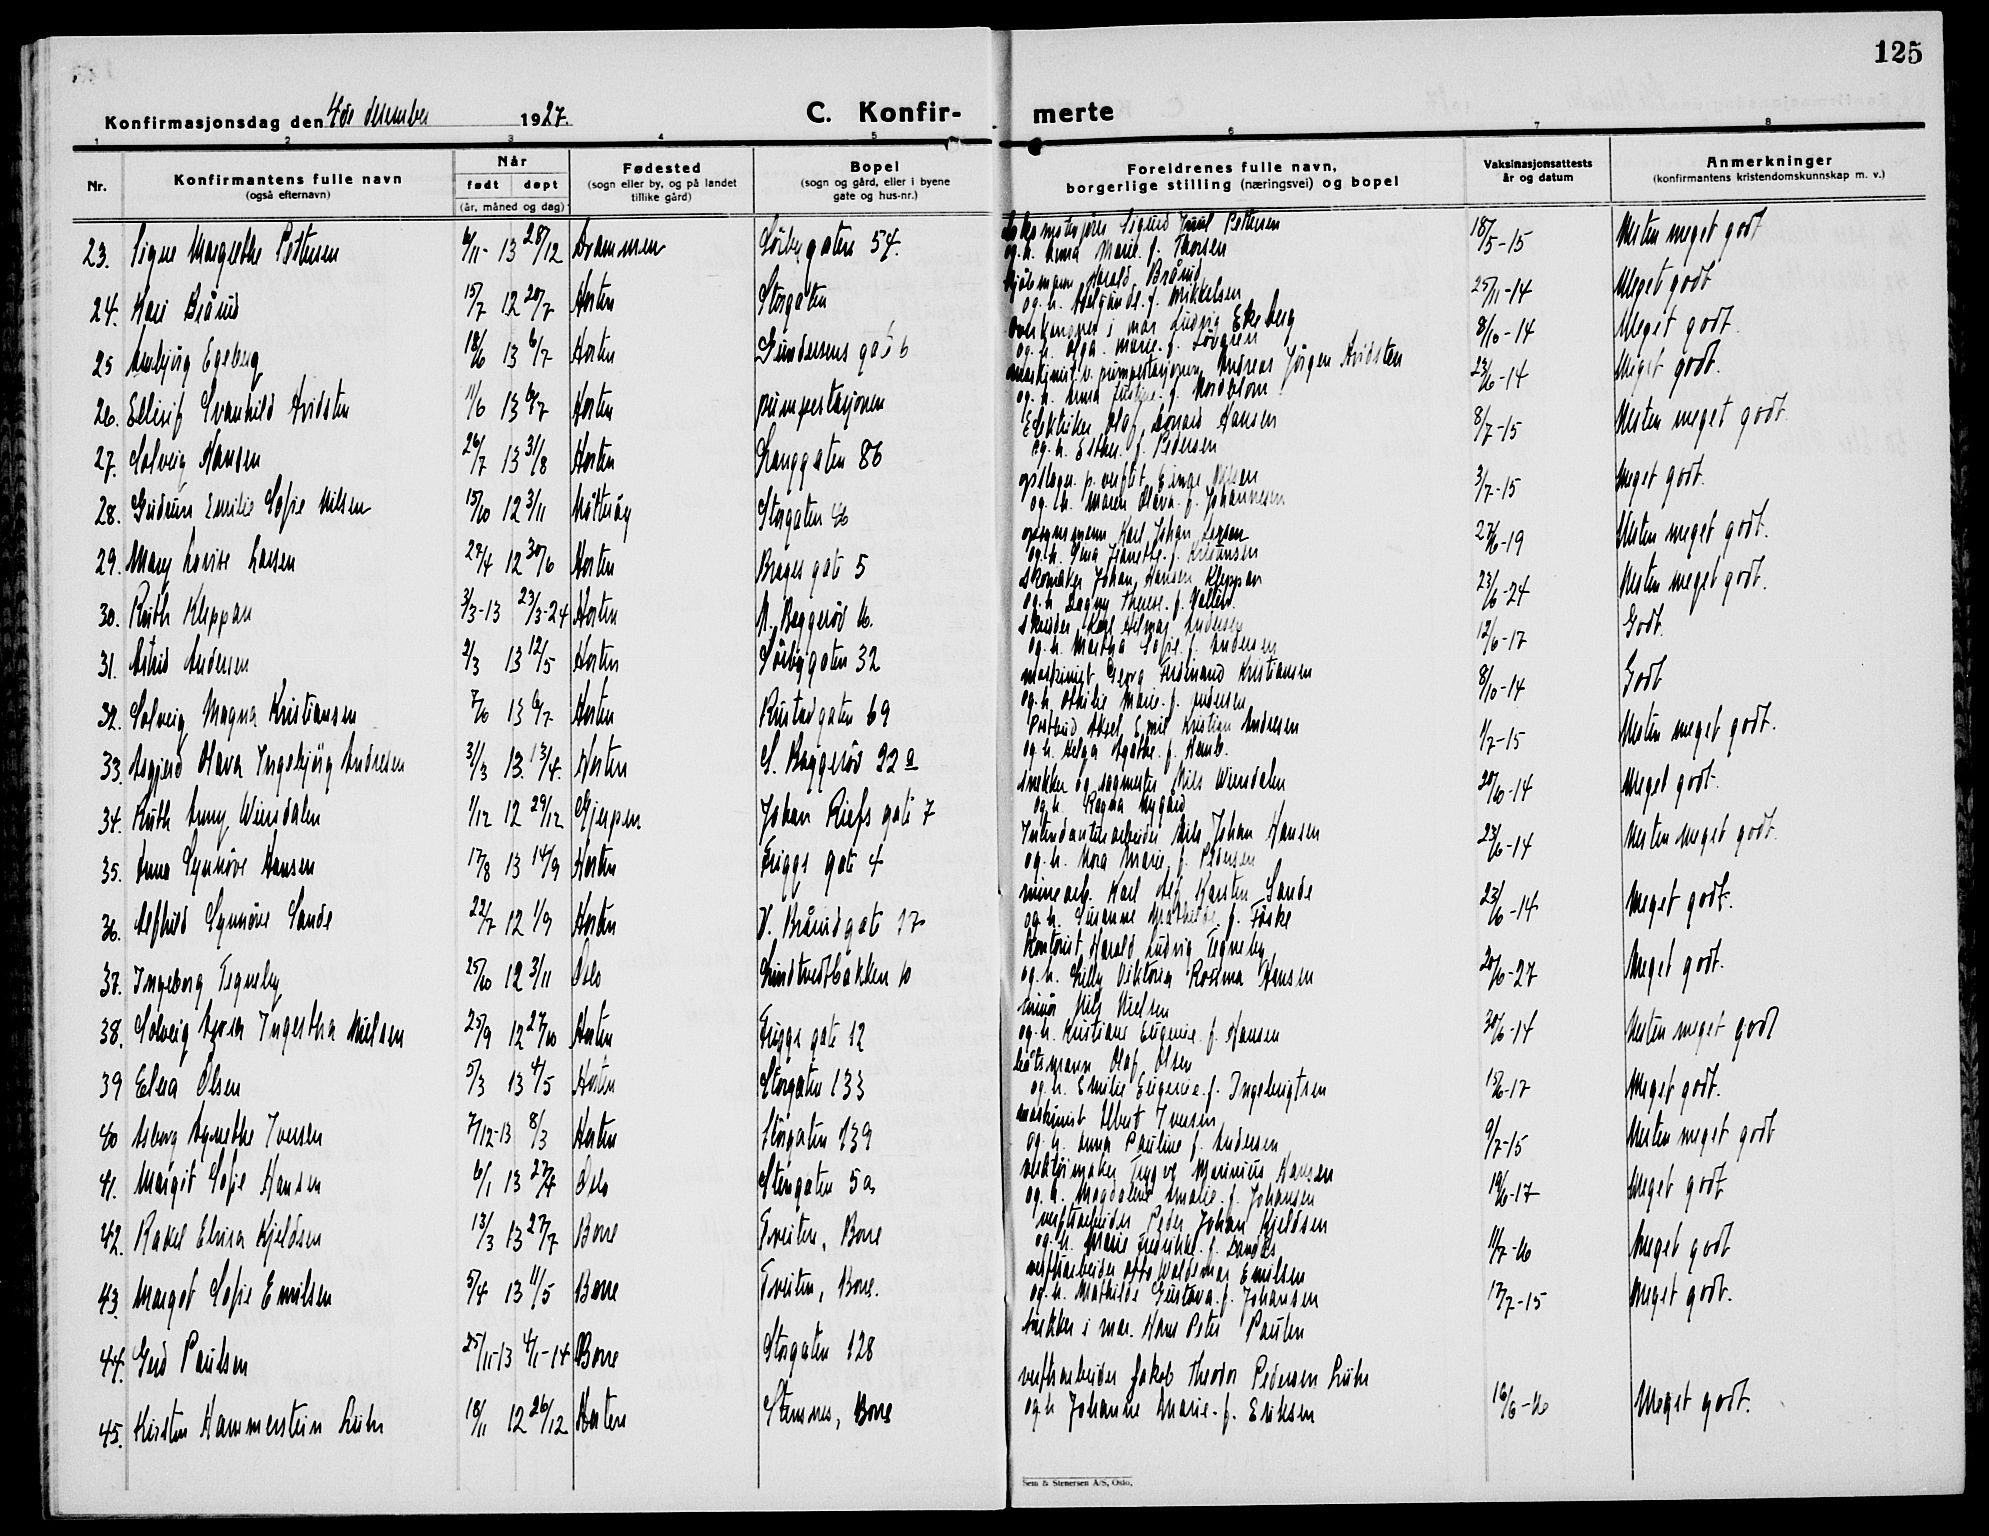 125
Konfirmasjonsdag den 4de desember 1927.
C. Konfir- merte
1 2 3 4 5 6 7 8
Nr.
Konfirmantens fulle navn
(også efternavn)
Når
født døpt
(år, måned og dag)
Fødested
(sogn eller by, og på landet
tillike gård)
Bopel
(sogn og gård, eller i byene
gate og hus-nr.)
Foreldrenes fulle navn,
borgerlige stilling (næringsvei) og bopel
Vaksinasjonsattests
år og datum
Anmerkninger
(konfirmantens kristendomskunnskap m. v.)
23. Signe Margrethe Pettersen 6/11-13 28/12 Drammen Sørbygaten 54. Sigurd Juul Pettersen 18/5-15 Nesten meget godt
og h. Anna Marie. f. Thorsen
24. Kari Brårud 15/7 12 20/7 Horten Storgaten Harald Brårud 25/11-14 Meget godt
og h. f. Mikkelsen
25 Egeberg 18/6 13 6/7 Horten Gundersens gate 6 Ludvig Ekeberg 8/10-14 Meget godt.
og h. Olga Marie. f. Løvgren
26. Ellisif Svanhild Avidsten 11/6 13 6/7 Horten pumpestasjonen maskinist v. pumpestasjonen Andreas Jörgen Avidsten 23/6-14 Meget godt.
og h. Anna Justine. f. Nordblom
27. Solveig Hansen 26/7 13 31/8 Horten Langgaten 86 Elektriker Olaf Hansen 8/7-15 Nesten meget godt.
og h. Esther. f. Pedersen
28. Gudrun Emilie Sofie Nilsen 15/10 12 3/11 Nøtterøy Storgaten p. verftet Einar Nilsen 3/7-15 Meget godt.
og h. Maren Olava. f. Johannesen
29. Mary Lovise Larsen 24/4 12 30/6 Horten Brages gate 5 Karl Johan Larsen -19 Nesten meget godt.
og h. Gina Jeanette. f. Kristiansen
30. Ruth Kleppan 3/3-13 23/3-24 Horten N. Baggerød Skomaker Johan Hansen Kleppan 23/6-24 Nesten meget godt.
og h. Dagny Therese. f.
31. Astrid Andersen 2/3 13 12/5 Horten Sørbygaten 32 Skredder Karl Hilmar Andersen 12/6-17 Godt.
og h. Martha Sofie. f. Andersen
32. Solveig Magna Kristiansen 7/6 13 6/7 Horten Rustadgaten 69 maskinist Georg Ferdinand Kristiansen 8/10-14 Godt
og h. Othilie Marie. f. Andersen
33. Asgjerd Olava Ingebjørg Andresen 31/3 13. 13/4. Horten S. Baggerød 22a Postbud Aksel Emil Kristian Andresen 1/7-15 Nesten meget godt.
og h. Helga Agathe. f.
34. Ruth Anny Wiersdalen 1/12 12 29/12 Gjerpen Johan Riefs gate 7 snekker og sagmester Nils Wiersdalen 20/6-14 Meget godt.
og h. Ragna Nygård
35. Anna Synnöve Hansen 17/8 13 14/9 Horten Friggs gate 4 Intendanturarbeider Nils Johan Hansen 23/6-14 Nesten meget godt.
og h. Nora Marie. f. Pedersen
36. Alfhild Synnöve Sande 22/7 12 1/9 Horten V. Bråradgate 17 minearb. Karl Alf Karsten Sande 23/6-14 Meget godt.
og h. Susanne Mathilde. f. Foske
37. Ingeborg Tegneby 25/10 12 3/11 Oslo Lundtvedtbakken 10 Kontorist Harald Ludvig Tegneby 20/6-27 Meget godt.
og h. Lilly Viktoria Rosina Hansen
38. Solveig Ingertha Nielsen 25/9 12 27/10 Horten Friggs gate 12 minør Nils Nielsen 30/6-14 Nesten meget godt
og h. Kristiane Eugenie. f. Hansen
39 Elna Olsen 5/3 13 4/5 Horten Storgaten 133 båtsmann Olaf Olsen 15/6-17 Meget godt.
og h. Emilie Eugenie. f. Ingebrigtsen
40 Asborg Agnethe Iversen 7/12-13 8/3 Horten Storgaten 139 maskinist Albert Iversen 9/7-15 Nesten meget godt
og h. Anna Pauline f. Andersen
41. Margit Sofie Hansen 6/1 13 27/4 Oslo Storgaten 5a. verktøimaker Trygve Marinius Hansen 19/6-17 Meget godt
og h. Magdalene Amalie. f. Johansen
42. Rakel Elvira Kjeldsen 13/3 13 27/7 Borre Tveiten, Borre verftsarbeider Peder Johan Kjeldsen 11/7- Meget godt
og h. Marie Fredrikke. f.
43. Margot Sofie Emilsen 5/4 13 11/5 Borre Tveiten, Borre. verftsarbeider Otto Waldemar Emilsen 17/7-15 Meget godt.
og h. Mathilde Gustava. f. Johansen
44. Gerd Paulsen 25/11-13 4/1-14 Borre Storgaten 128 i mar. Hans Peter Paulsen
45. Kirsten Hammerstein Lühr 18/11 12 26/12 Horten Stensnes, Borre verftsarbeider Jakob Theodor Pedersen Lühr 16/6- Meget godt.
og h Johanne Marie. f. Eriksen
Sem & Stenersen A/S, Oslo.